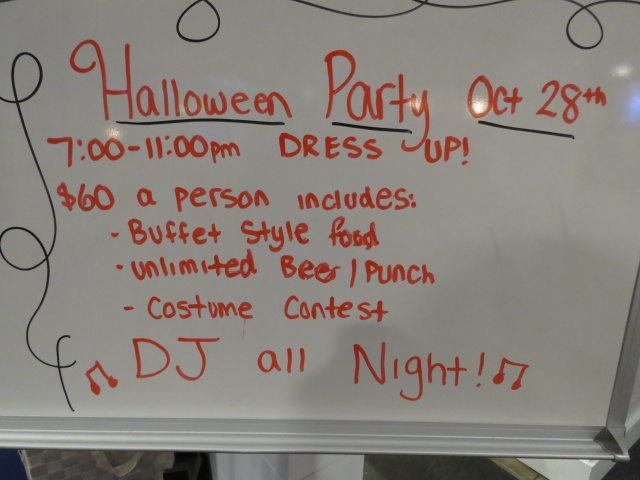 Halloween Party Oct 28th
7:00-11:00pm DRESS UP!
$60 a person includes:
- Buffet Style food
- Unlimited Beer/Punch
- Costume Contest
DJ all Night!